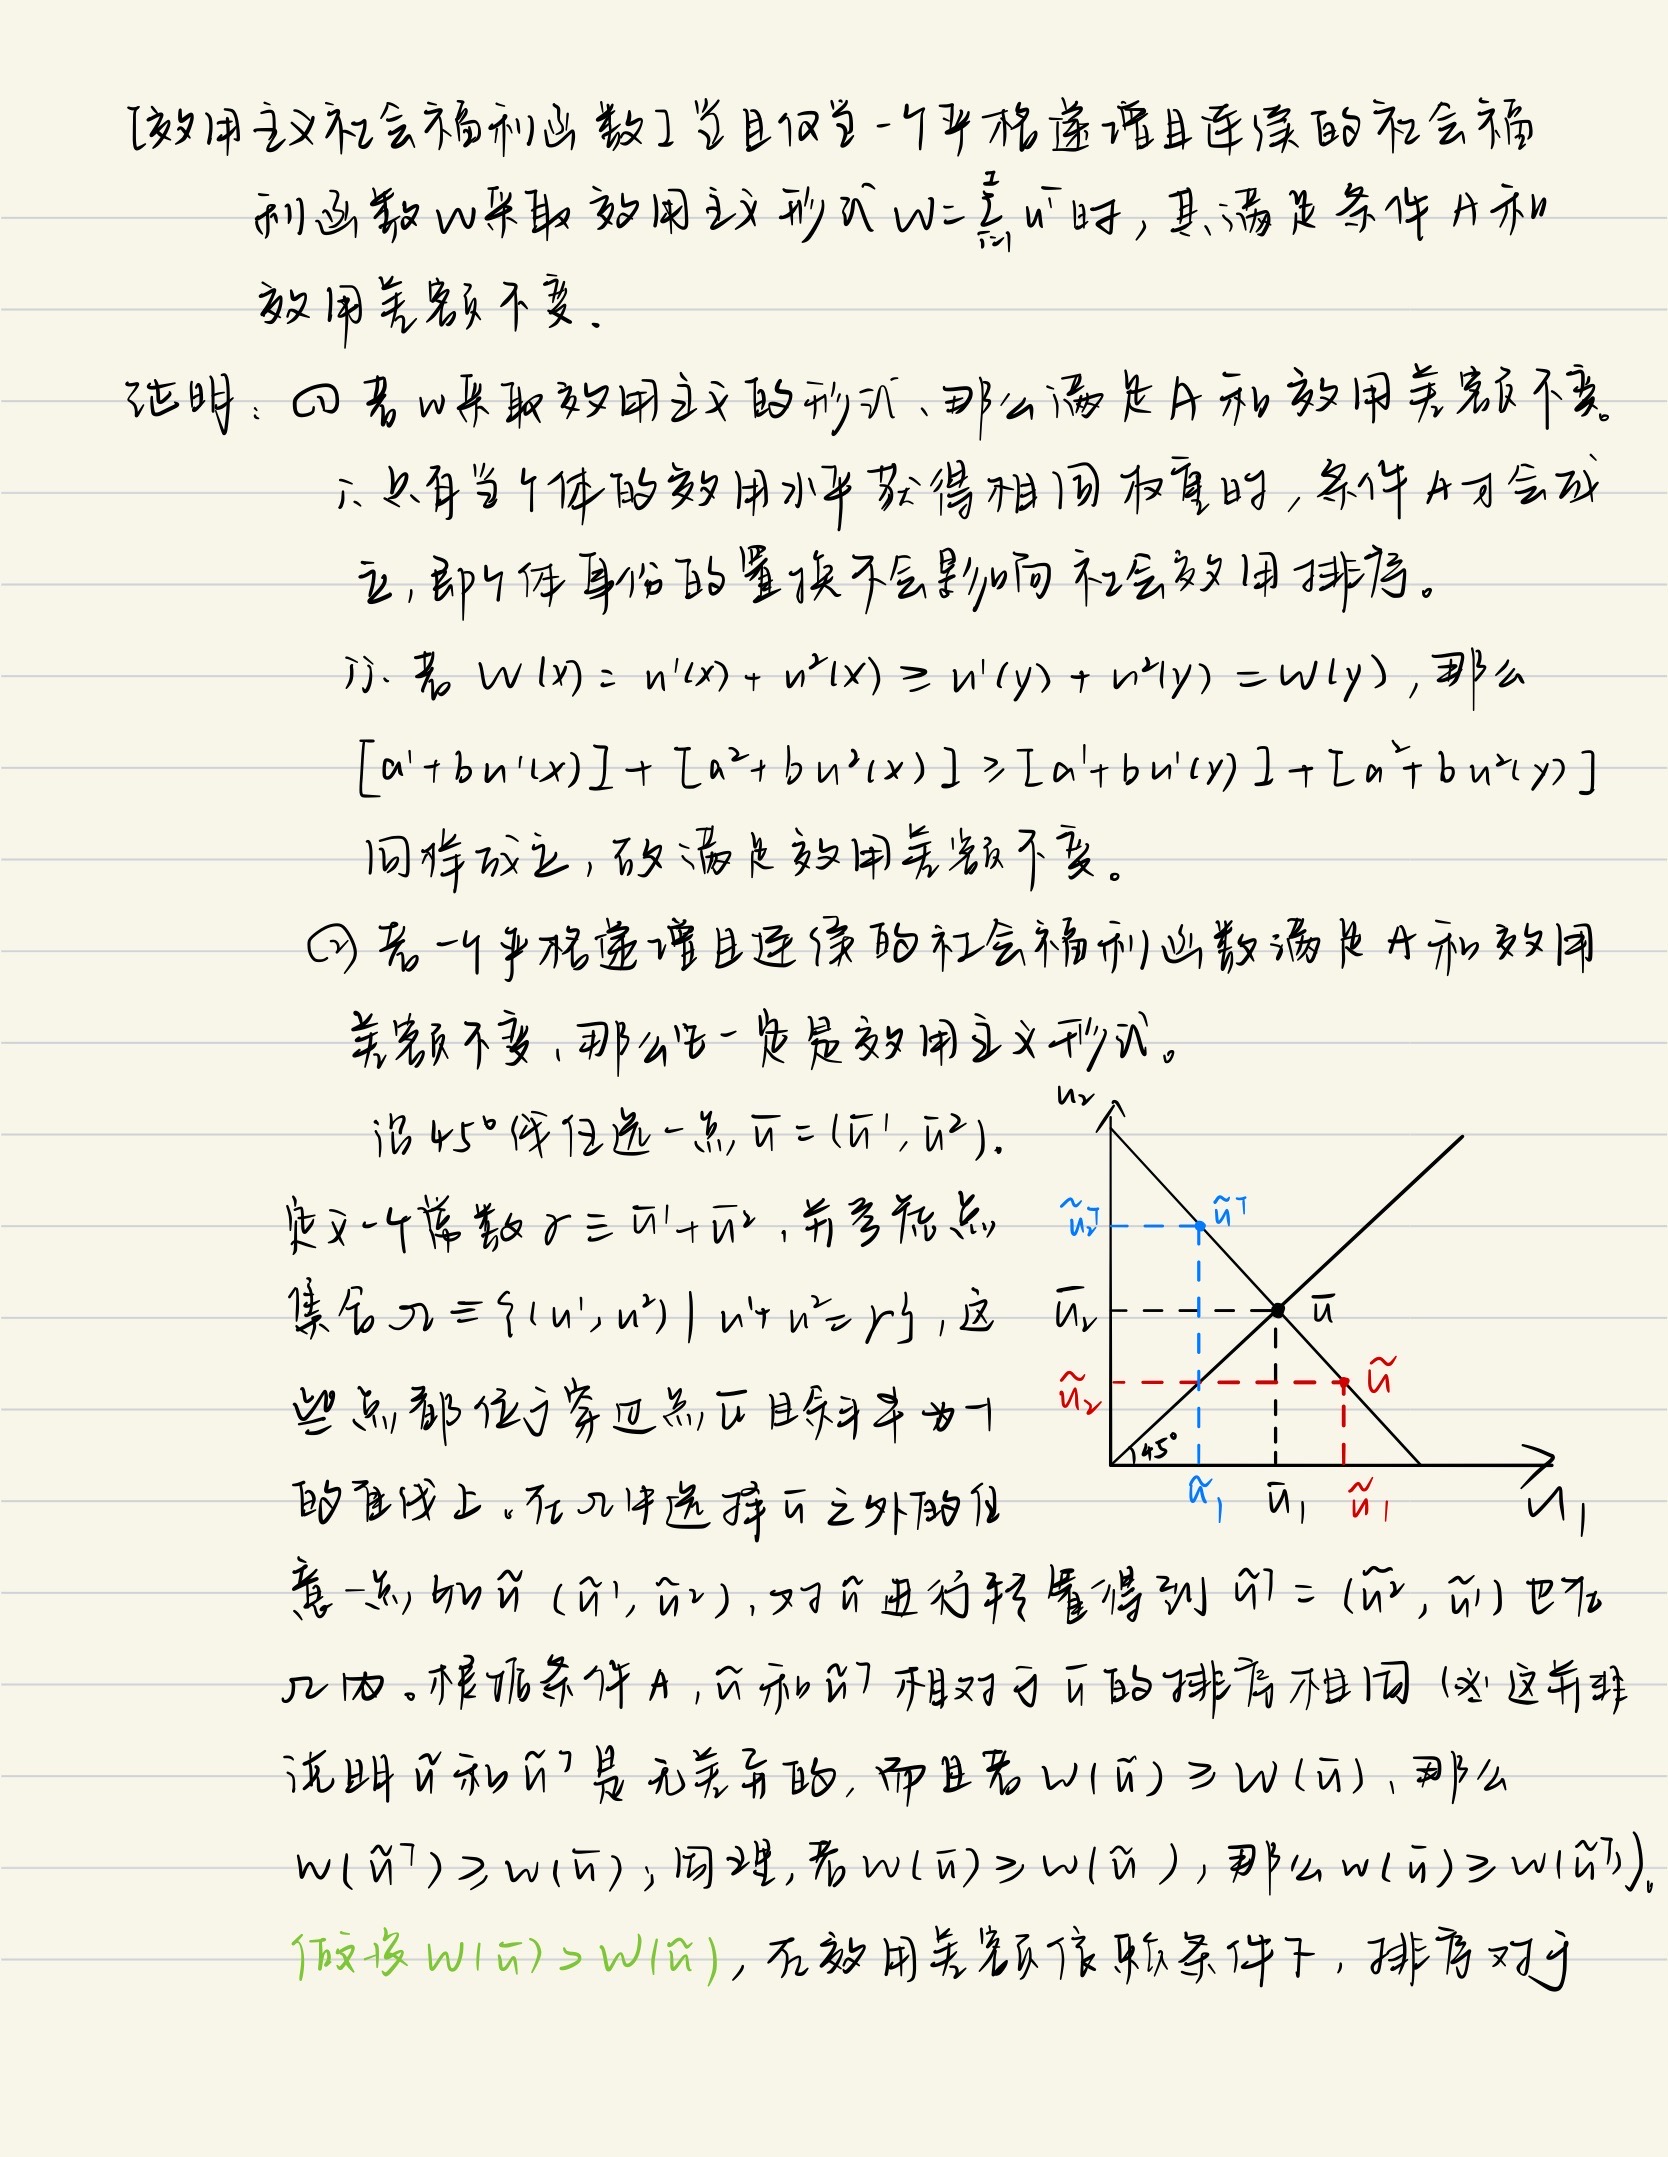 [效用主义社会福利函数]当且仅当一个严格递增且连续的社会福
利函数W采取效用主义形式 W=∑_{i=1}^{I} uⁱ时,其满足条件A和
效用差额不变.
证明:① 若W采取效用主义的形式、那么满足A和效用差额不变。
i. 只有当个体的效用水平获得相同权重时,条件A才会成
立,即个体身份的置换不会影响社会效用排序。
ii. 若 W(x) = u¹(x) + u²(x) ≥ u¹(y) + u²(y) = W(y),那么
[a¹+bu¹(x)]+[a²+bu²(x)]≥[a¹+bu¹(y)]+[a²+bu²(y)]
同样成立,故满足效用差额不变。
② 若一个严格递增且连续的社会福利函数满足A和效用
差额不变、那么它一定是效用主义形式。
沿45°线任选一点ū=(ū¹,ū²).
定义一个常数γ≡ū¹+ū²,并考虑点
集合Ω≡{(u¹,u²)|u¹+u²=γ},这
些点都位于穿过点ū且斜率为-1
的直线上。在Ω中选择ū之外的任
意一点,如ũ(ũ¹,ũ²),对ũ进行转置得到ũᵀ=(ũ²,ũ¹)也在
Ω内。根据条件A,ũ和ũᵀ相对于ū的排序相同(这并非
说明ũ和ũᵀ是无差异的,而且若W(ũ)≥W(ū)、那么
W(ũᵀ)≥W(ū);同理,若W(ū)≥W(ũ),那么W(ū)≥W(ũᵀ))。
假设W(ū)>W(ũ),在效用差额依赖条件下,排序对于
u₂
ũ₂ᵀ
ũᵀ
ū₂
ū
ũ₂
ũ
45°
ũ₁
ū₁
ũ₁
u₁